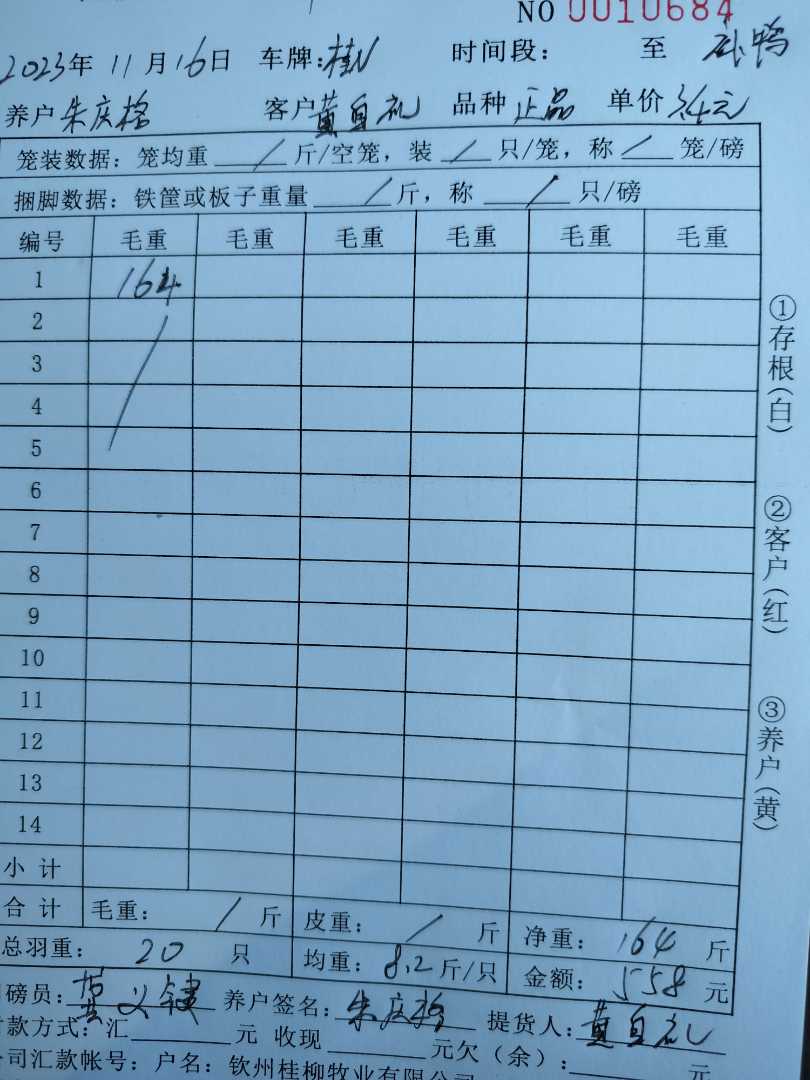 NO 0010684
2023年 11月16日 车牌:桂N 时间段: 至 鸭
养户 朱庆 客户 黄自礼 品种 正品 单价 3.4元
笼装数据: 笼均重 / 斤/空笼, 装 / 只/笼, 称 / 笼/磅
捆脚数据: 铁筐或板子重量 / 斤, 称 / 只/磅
编号 毛重 毛重 毛重 毛重 毛重 毛重
1 164
2
3
4
5
6
7
8
9
10
11
12
13
14
小计
合计 毛重: / 斤 皮重: / 斤 净重: 164 斤
总羽重: 20 只 均重: 8.2 斤/只 金额: 558 元
磅员: 义健 养户签名: 朱庆 提货人: 黄自礼
款方式: 汇 元 收现 元欠(余): 元
司汇款帐号: 户名: 钦州桂柳牧业有限公司
①存根(白)
②客户(红)
③养户(黄)